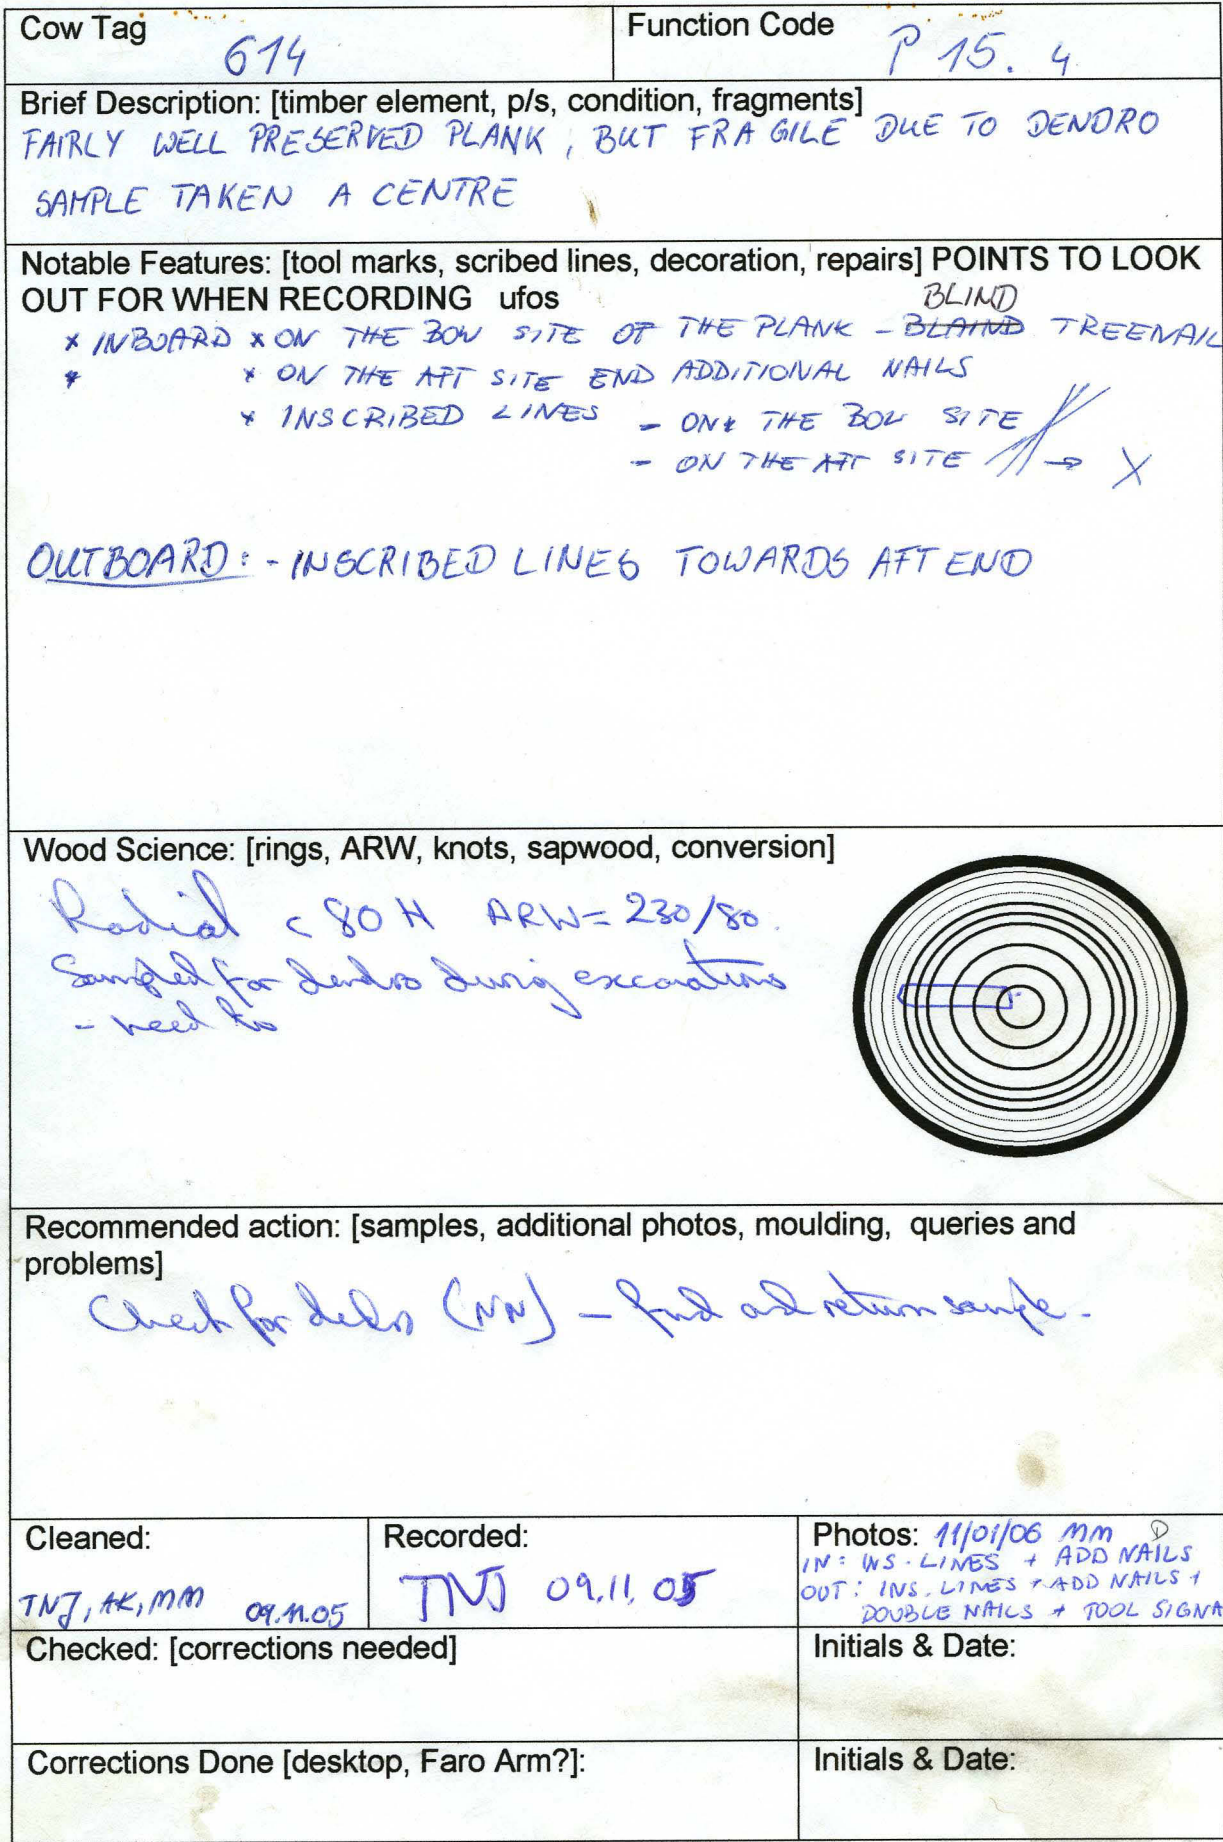 Cow Tag
614
Function Code
P 15. 4
Brief Description: [timber element, p/s, condition, fragments]
FAIRLY WELL PRESERVED PLANK, BUT FRAGILE DUE TO DENDRO
SAMPLE TAKEN A CENTRE
Notable Features: [tool marks, scribed lines, decoration, repairs] POINTS TO LOOK
OUT FOR WHEN RECORDING ufos
BLIND
x INBOARD x ON THE BOW SITE OF THE PLANK - BLAIND TREENAIL
x x ON THE AFT SITE END ADDITIONAL NAILS
x INSCRIBED LINES - ON THE BOW SITE
- ON THE AFT SITE → X
OUTBOARD: - INSCRIBED LINES TOWARDS AFT END
Wood Science: [rings, ARW, knots, sapwood, conversion]
Radial c 80 H ARW= 230/80.
Sampled for dendro during excavations
- need to
Recommended action: [samples, additional photos, moulding, queries and
problems]
Check for dendro (NN) - find and return sample.
Cleaned:
TNJ, AK, MM 09.11.05
Recorded:
TNJ 09.11.05
Photos: 11/01/06 MM D
IN: INS. LINES + ADD NAILS
OUT: INS. LINES + ADD NAILS +
DOUBLE NAILS + TOOL SIGNA
Checked: [corrections needed]
Initials & Date:
Corrections Done [desktop, Faro Arm?]:
Initials & Date: